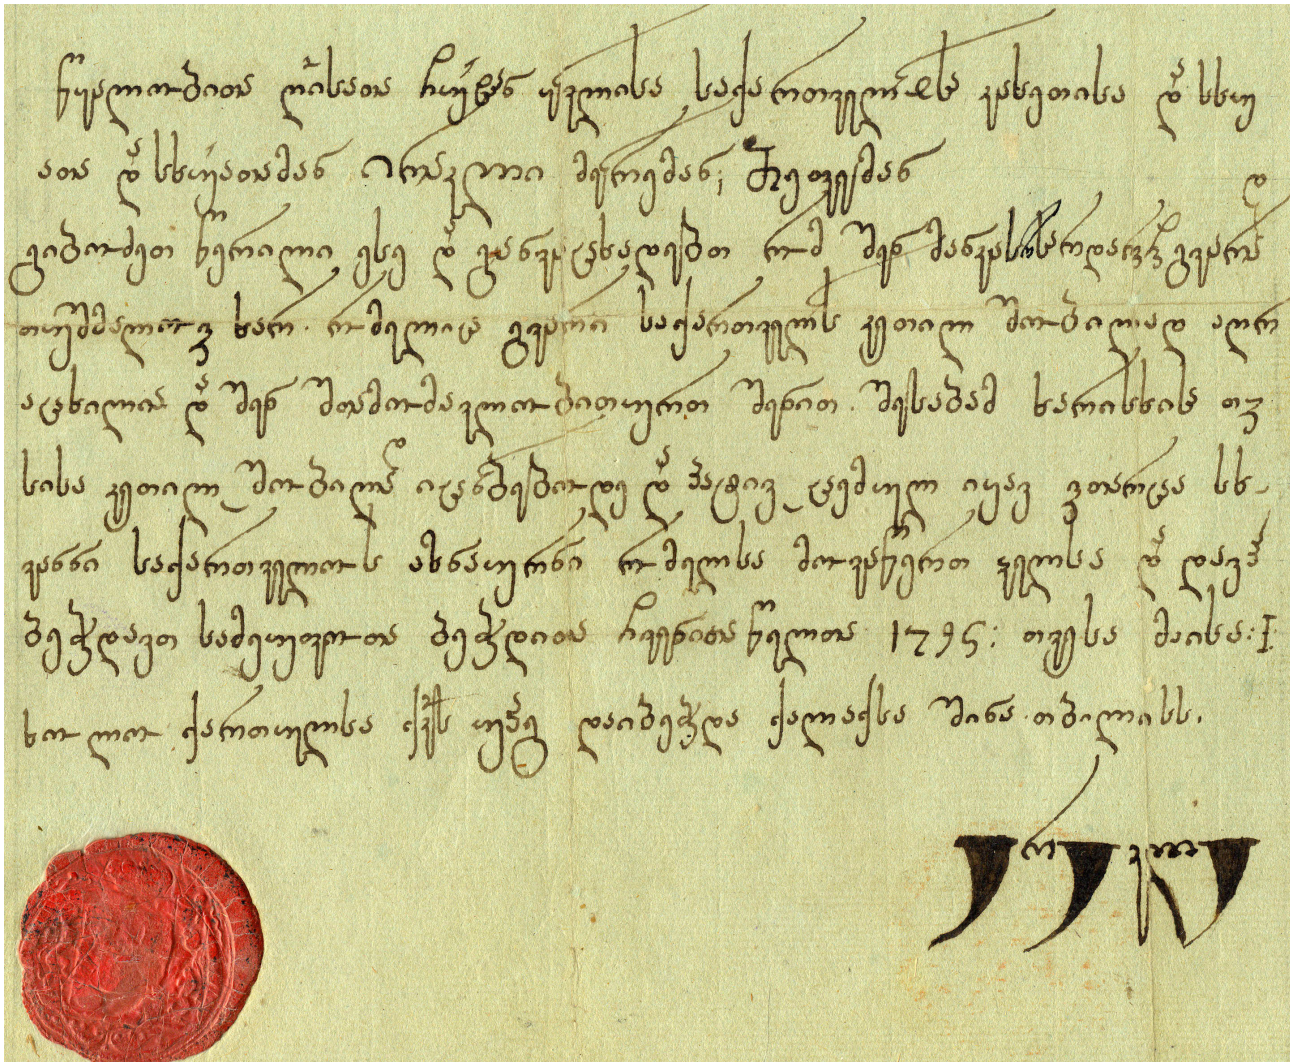 წყალობითა ღ͠ისათა ჩუ͠ენ ყ͠ლისა საქართველო͠სა კახეთისა დ͠ა სხუ
ათა დ͠ა სხუათამან ირაკლი მეორემან;
გიბოძეთ წერილი ესე დ͠ა განვაცხადებთ რ͠მ შენ
ხარ. რ͠მელიც გვარი საქართველ͠ს კეთილ შობილად აღრ
აცხილია დ͠ა შენ შთამომავლობითურთ შენით. შესაბამ ხარისხისა თჳ
სისა კეთილ შობილ͠ა იცნობებოდე დ͠ა პატივ ცემულ იყავ ვითარცა სხ
ვანნი საქართველოს აზნაურნი რ͠მელსა მოვაწერთ ჴელსა დ͠ა დავა
ბეჭდავთ სამეუფოთა ბეჭდითა ჩვენითა წელთა 1795: თვესა მაისა: I:
ხოლო ქართულსა ქ͠კს უპგ დაიბეჭდა ქალაქსა შინა თბილისს.
ირაკლი